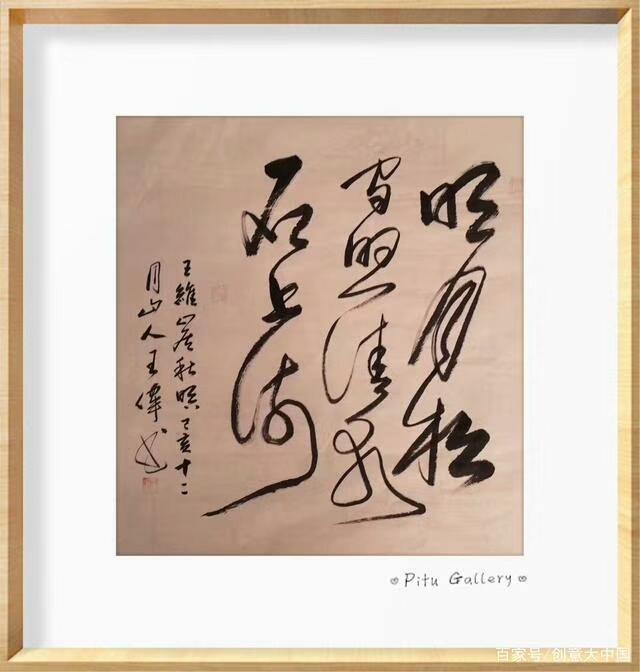 明月松
间照清泉
石上流
王維山居秋暝己亥十二
月山人王偉书
Pitu Gallery
百家号/创意大中国